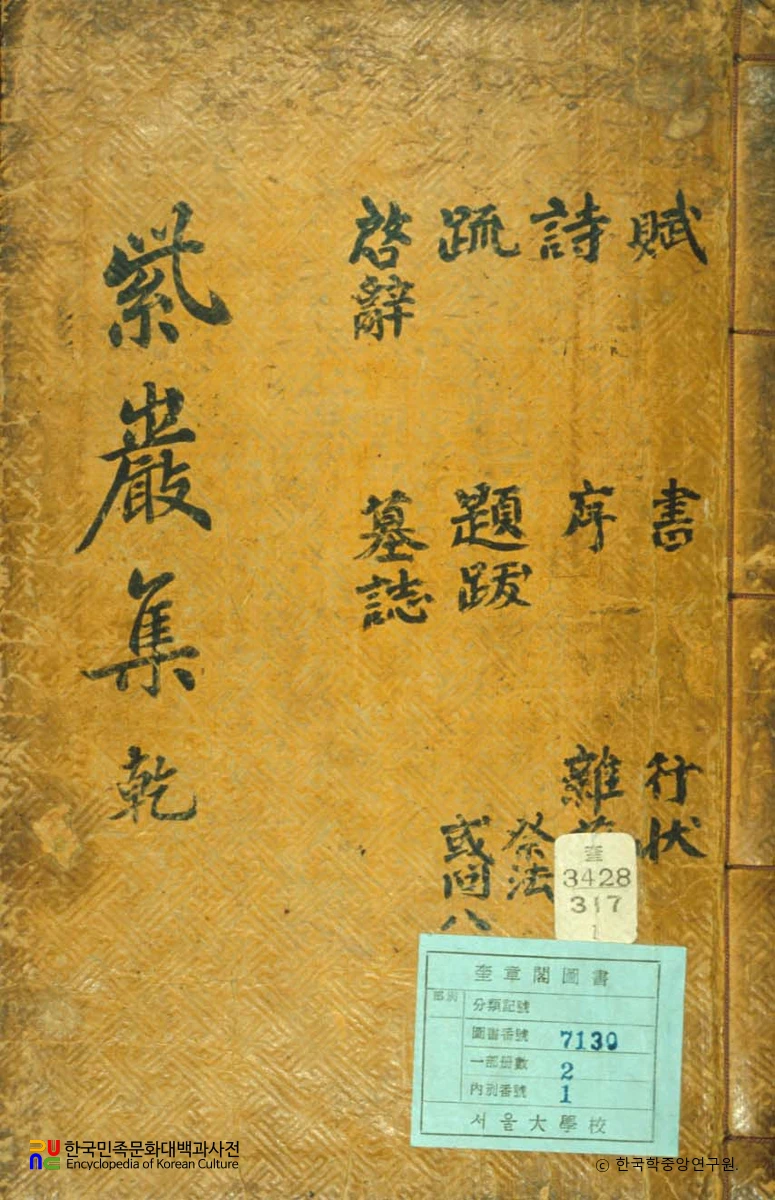 紫巖集 乾
賦
詩
疏
啓辭
書
序
題跋
墓誌
行狀
雜
祭法
或問八
奎
3428
317
1
奎章閣圖書
部別
分類記號
圖書番號 7130
一部册數 2
內別番號 1
서울大學校
한국민족문화대백과사전
Encyclopedia of Korean Culture
ⓒ 한국학중앙연구원.